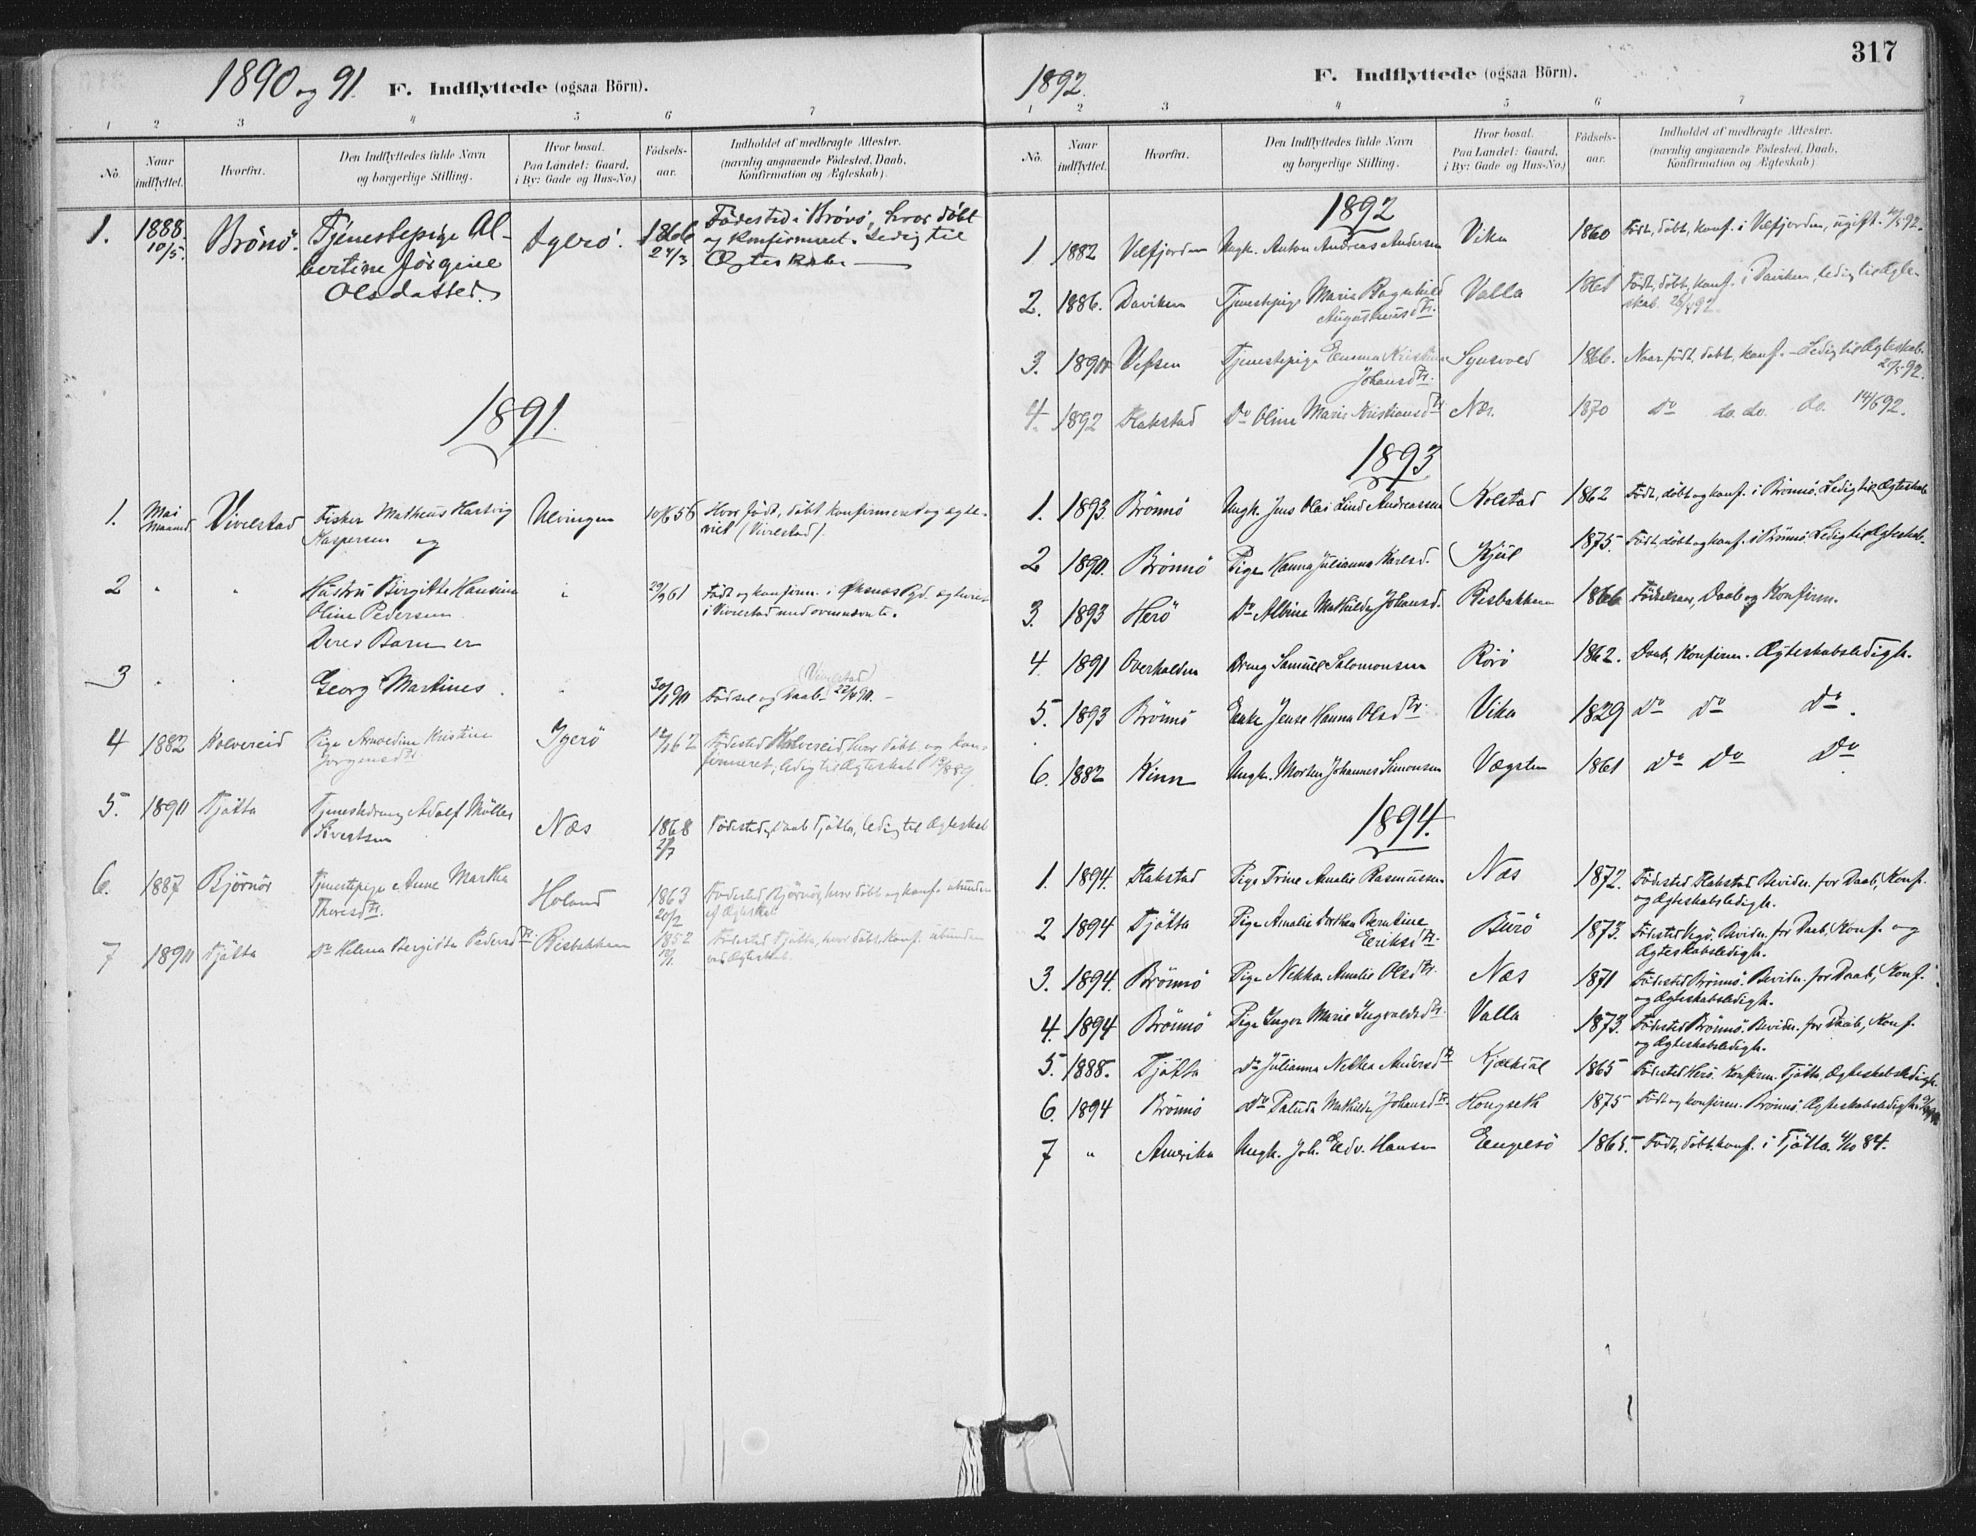 1890 og 91. F. Indflyttede (ogsaa Börn).
1 2 3 4 5 6 7
No. Naar indflyttet. Hvorfra. Den Indflyttedes fulde Navn og borgerlige Stilling. Hvor bosat. Paa Landet: Gaard, i By: Gade og Hus-No.) Födsels-aar. Indholdet af medbragte Attester. (navnlig angaaende Födested, Daab, Konfirmation og Ægteskab)
1. 1888 10/5. Brönö. Tjenestepige Al- Igerö. 1866 Födested i Brönö, hvor döbt
bertine Jörgine 24/3 og konfirmeret. Ledig til
Olsdatter. Ægteskab
1891.
1. Mai Maaned Vivelstad Fisker Matheus Hartvig Ulvingen 10/6 56 Hvor födt, döbt konfirmeret og ægte-
Kaspersen og viet (Vivelstad).
2 " " Hustru Birgitte Hansine " 29/9 61 Födt og konfirm. i Öksnes Pgd. ægteviet
Oline Pedersen i Vivelstad med ovennævnte.
Deres Barn er
3 " " Georg Martines " 30/1 90 Födsel og Daab (Vivelstad) 27/4 90.
4 1882 Kolvereid Pige Arnoldine Kristine Igerö 12/1 62 Födested Kolvereid hvor döbt og kon-
Jörgensdtr firmeret, ledig til Ægteskab 19/8 89
5. 1890 Tjötta Tjenestedreng Adolf Möller Næs 1868 Födested, Daab Tjötta, ledig til Ægteskab
Sivertsen 2/7
6. 1887 Björnör Tjenestepige Anne Martha Holand 1863 Födested Björnör, hvor döbt og konf. ubunden
Thoresdtr. 20/2 af Ægteskab
7 1890 Tjötta Do Helena Bergitta Pedersdtr. Risbakken 1852 Födested Tjötta, hvor döbt, konf. ubunden
12/1. ved Ægteskab.
317
1892. F. Indflyttede (ogsaa Börn).
1 2 3 4 5 6 7
No. Naar indflyttet. Hvorfra. Den Indflyttedes fulde Navn og borgerlige Stilling. Hvor bosat. Paa Landet: Gaard, i By: Gade og Hus-No.) Födsels-aar. Indholdet af medbragte Attester. (navnlig angaaende Födested, Daab, Konfirmation og Ægteskab)
1892
1 1882 Velfjorden Ungk. Anton Andreas Andersen Vika 1860 Födt, döbt, konf. i Velfjorden, ugift. 92.
2. 1886. Daviken Tjenestepige Marie Ragnhild Valla 1861 Födt, döbt, konf. i Daviken, ledig til Ægte-
Augustinusdtr. skab 92.
3. 1890 Vefsen Tjenestepige Emma Kristine Synsvold 1866. Naar födt, döbt, konf. - Ledig til Ægteskab.
Johansdtr. 20/5 92.
4. 1892 Hakstad Do Oline Marie Kristiansdtr Næs. 1870 do do. do. do. 14/6 92.
1893
1. 1893 Brönnö Ungk. Jens Olai Lind Andreassen Kolstad 1862 Födt, döbt og konf. i Brönnö. Ledig til Ægteskab
2 1890. Brönnö Pige Hanna Julianna Karlsd. Kjul 1875. Födt, döbt og konf. i Brönnö. Ledig til Ægteskab.
3. 1893 Herö Do Albine Mathilde Johansd. Risbakken 1866 Födselsaar, Daab og Konfirm.
4. 1891 Overhalden Dreng Samuel Salomonsen Rörö 1862. Daab, Konfirm. Ægteskabsledigh.
5. 1893 Brönnö Enke Jense Hanna Olsdtr. Vika 1829 Do Do Do.
6. 1882 Kinn Ungk. Morten Johannes Simonsen Vægsten 1861 Do Do Do
1894.
1. 1894. Hakstad Pige Trine Amalie Rasmussen Næs 1872. Födested Hakstad. Bevidn. for Daab, Konf.
og Ægteskabsledigh.
2 1894 Tjötta Pige Amalie Dorthea Berntine Burö 1873. Födested Vegö. Bevidn. for Daab, Konf. og
Eriksdtr. Ægteskabsledigh.
3. 1894. Brönnö Pige Nekka Amalie Olsdtr. Næs 1871 Födested Brönnö. Bevidn. for Daab, Konf.
og Ægteskabsledigh.
4. 1894 Brönnö Pige Inger Marie Ingvaldsdtr. Valla 1873. Födested Brönnö. Bevidn. for Daab, Konf.
og Ægteskabsledigh.
5. 1888. Tjötta Do Julianna Nekkea Andersdtr Kjælköl 1865 Födested Herö. Konfirm. Tjötta, Ægteskabsledigh.
6. 1894 Brönnö Do Paluda Mathilde Johansdtr. Hongseth 1875 Födt og konfirm. Brönnö. Ægteskabsledigh.
7 " Amerika Ungk. Joh. Edv. Hansen Engelsö 1865. Födt, döbt, konf. i Tjötta. 4/10 84.